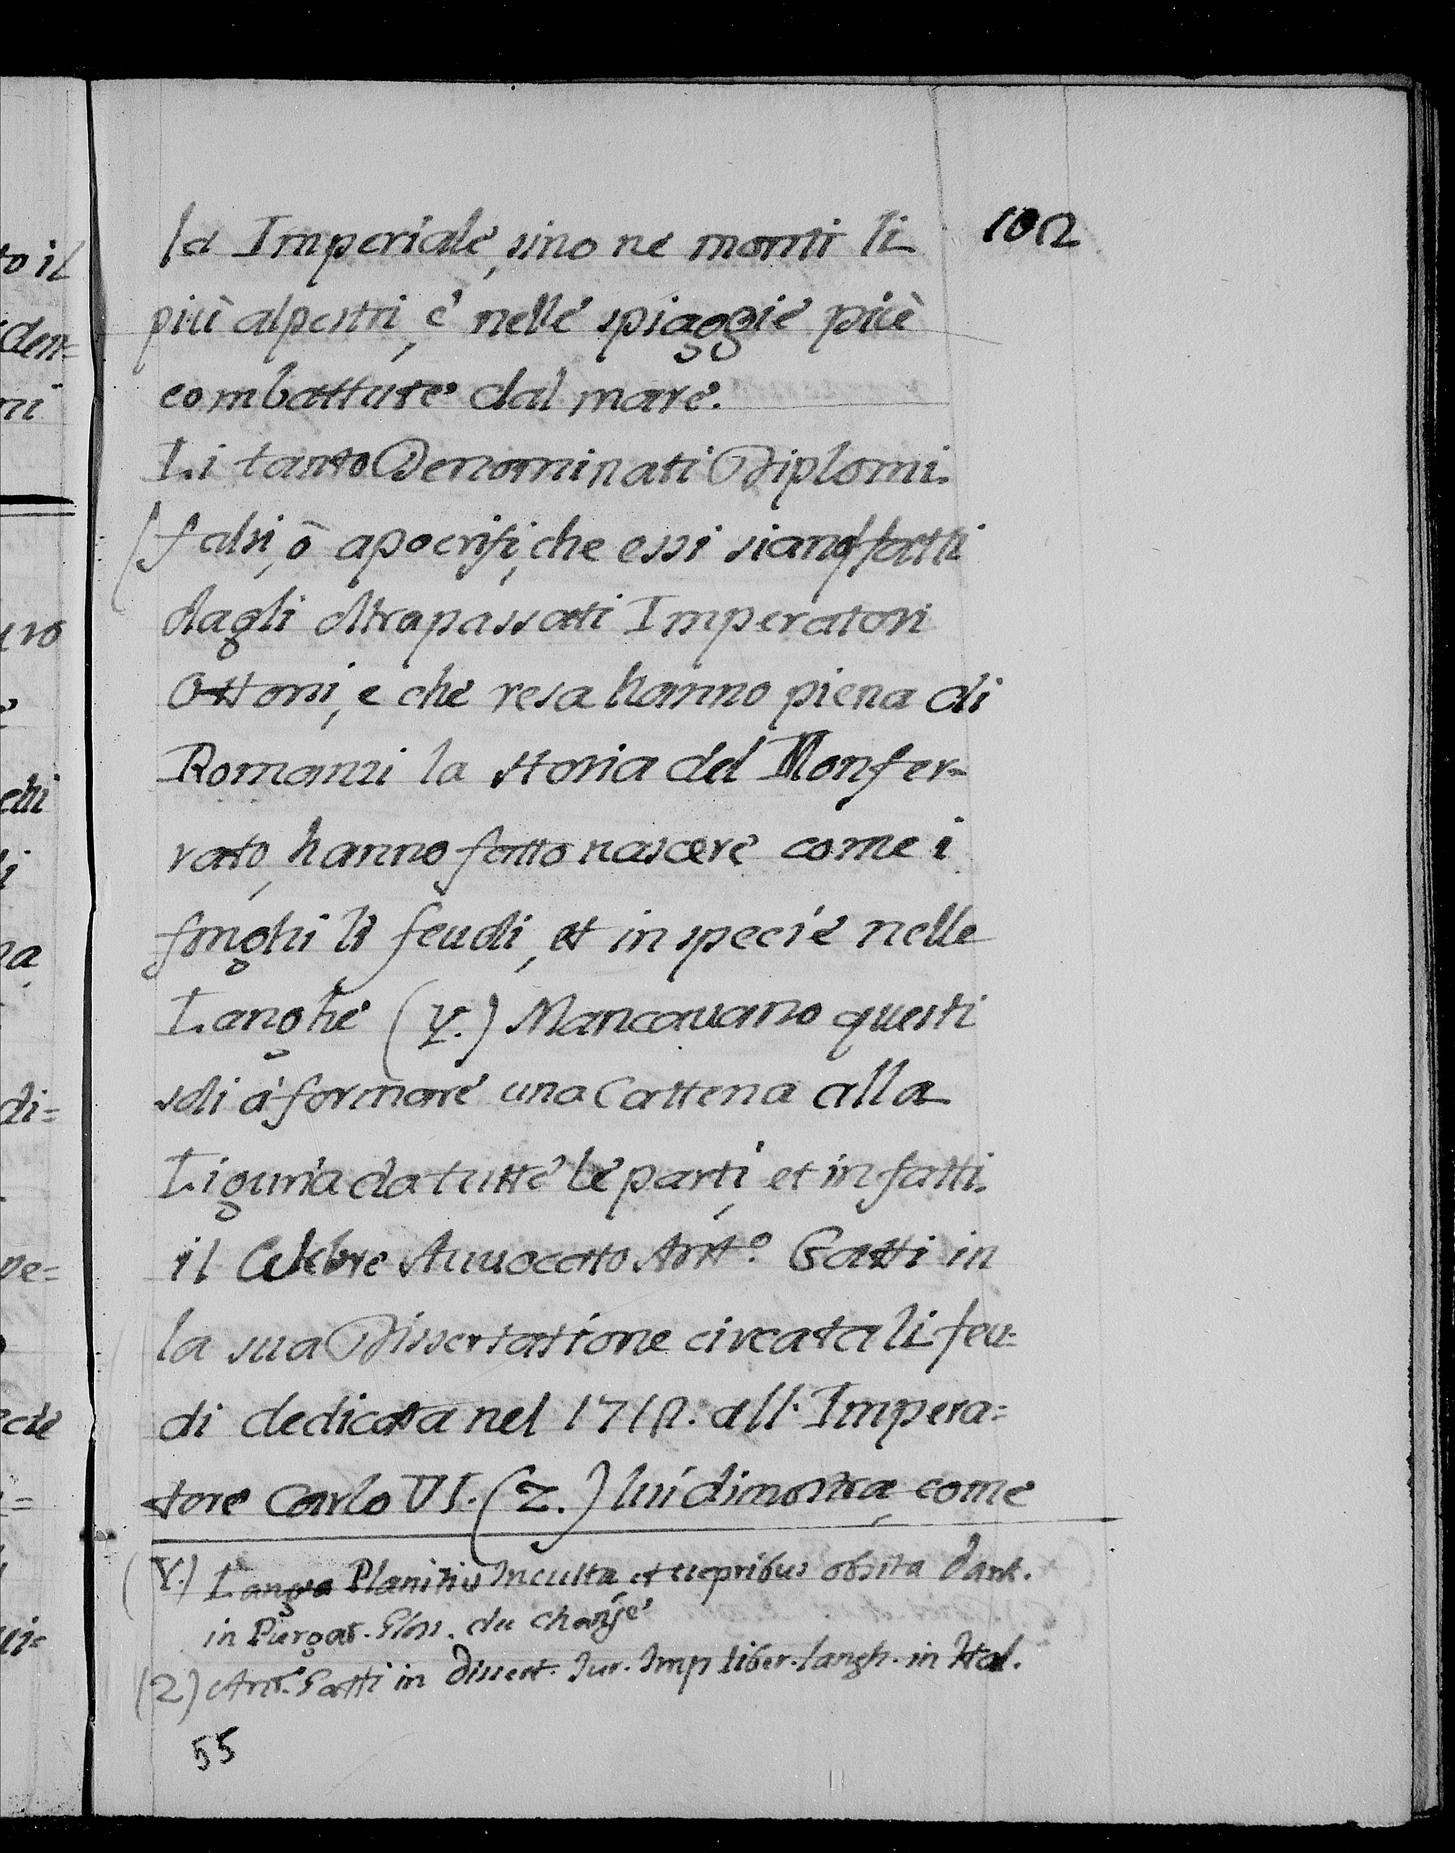 102
la Imperiale, sino ne monti li
più alpestri, e nelle spiaggie più
combatture dal mare.
Li tanto Denominati Diplomi
falsi, ò apocrifi, che essi siano fatti
dagli oltrapassati Imperatori
Ottoni, e che resa hanno piena di
Romanzi la storia del Monfer=
rato, hanno fatto nascere come i
fonghi li feudi, et in specie nelle
Langhe (Y.) Mancavano questi
soli à formare una Cattena alla
Liguria da tutte le parti, et in fatti
il Celebre Avvocato Antº. Gatti in
la sua Dissertatione circa tali feu=
di dedicata nel 1712. all' Impera=
tore Carlo VI. (Z.) lui dimostra, come
(Y.) Langa Planities Inculta, et vepribus obsita
in Pergas. Glos. du Change
(Z) Ant. Gatti in dissert. Iur. Imp. liber. langh. in Ital.
55
to il
den=
ni
uro
e
chi
li
na
di=
ve=
ui=